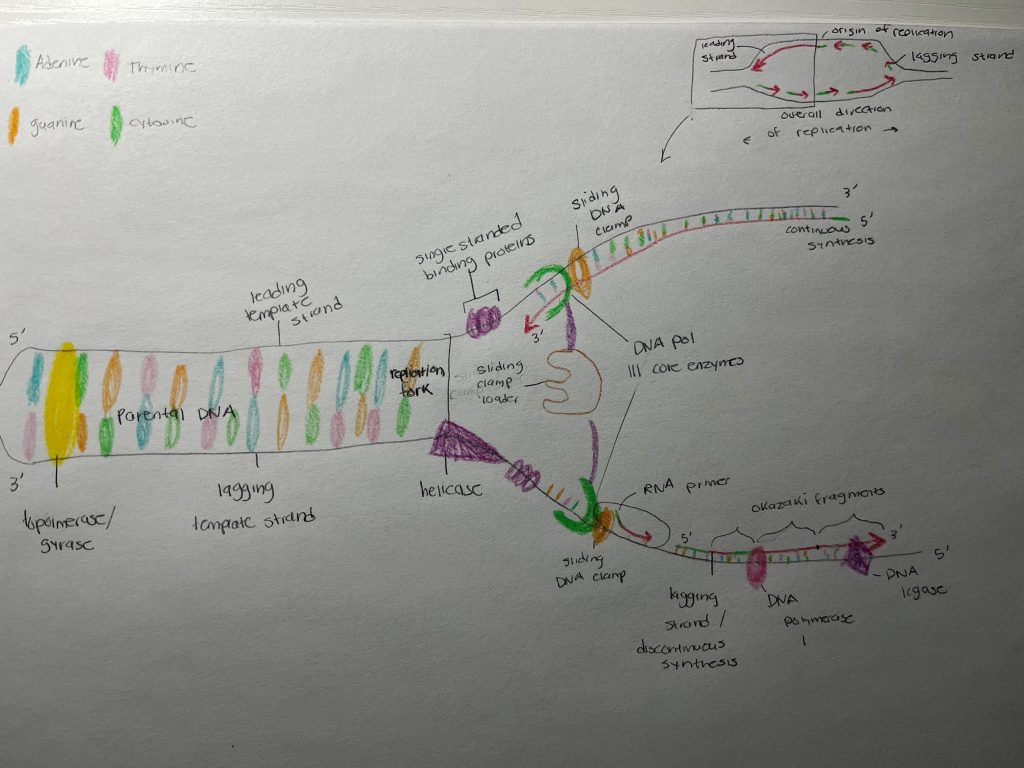 Adenine
Thymine
guanine
cytosine
origin of replication
leading
strand
lagging strand
overall direction
of replication
sliding
DNA
clamp
3'
5'
continuous
synthesis
single stranded
binding proteins
leading
template
strand
5'
3'
DNA pol
III core enzymes
replication
fork
sliding
clamp
loader
Parental DNA
3'
topoimerase/
gyrase
lagging
template strand
helicase
RNA primer
okazaki fragments
5'
3'
5'
sliding
DNA clamp
lagging
strand /
discontinuous
synthesis
DNA
polymerase
I
DNA
ligase